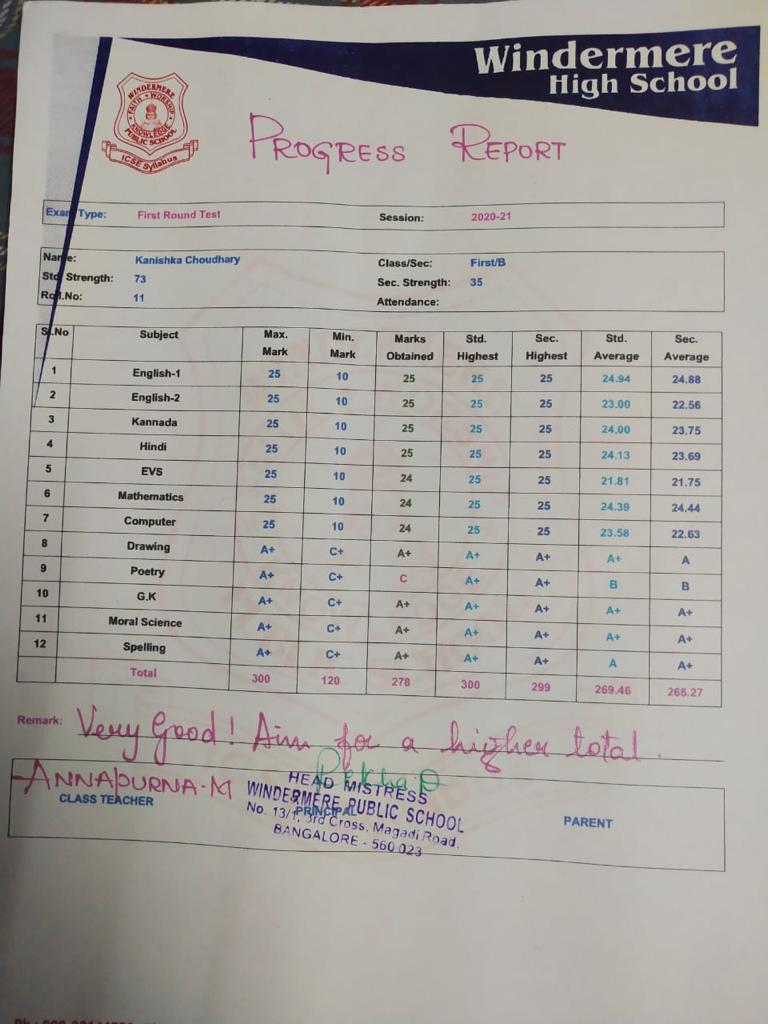 Windermere
High School
WINDERMERE
FAITH • WORSHIP
KNOWLEDGE
PUBLIC SCHOOL
ICSE Syllabus
PROGRESS REPORT
Exam Type: First Round Test Session: 2020-21
Name: Kanishka Choudhary Class/Sec: First/B
Std Strength: 73 Sec. Strength: 35
Roll.No: 11 Attendance:
S.No Subject Max. Mark Min. Mark Marks Obtained Std. Highest Sec. Highest Std. Average Sec. Average
1 English-1 25 10 25 25 25 24.94 24.88
2 English-2 25 10 25 25 25 23.00 22.56
3 Kannada 25 10 25 25 25 24.00 23.75
4 Hindi 25 10 25 25 25 24.13 23.69
5 EVS 25 10 24 25 25 21.81 21.75
6 Mathematics 25 10 24 25 25 24.39 24.44
7 Computer 25 10 24 25 25 23.58 22.63
8 Drawing A+ C+ A+ A+ A+ A+ A
9 Poetry A+ C+ C A+ A+ B B
10 G.K A+ C+ A+ A+ A+ A+ A+
11 Moral Science A+ C+ A+ A+ A+ A+ A+
12 Spelling A+ C+ A+ A+ A+ A A+
Total 300 120 278 300 299 269.46 266.27
Remark: Very Good! Aim for a higher total.
ANNAPURNA-M
CLASS TEACHER
HEAD MISTRESS
WINDERMERE PUBLIC SCHOOL
PRINCIPAL
No. 13/1, 3rd Cross, Magadi Road,
BANGALORE - 560 023
PARENT